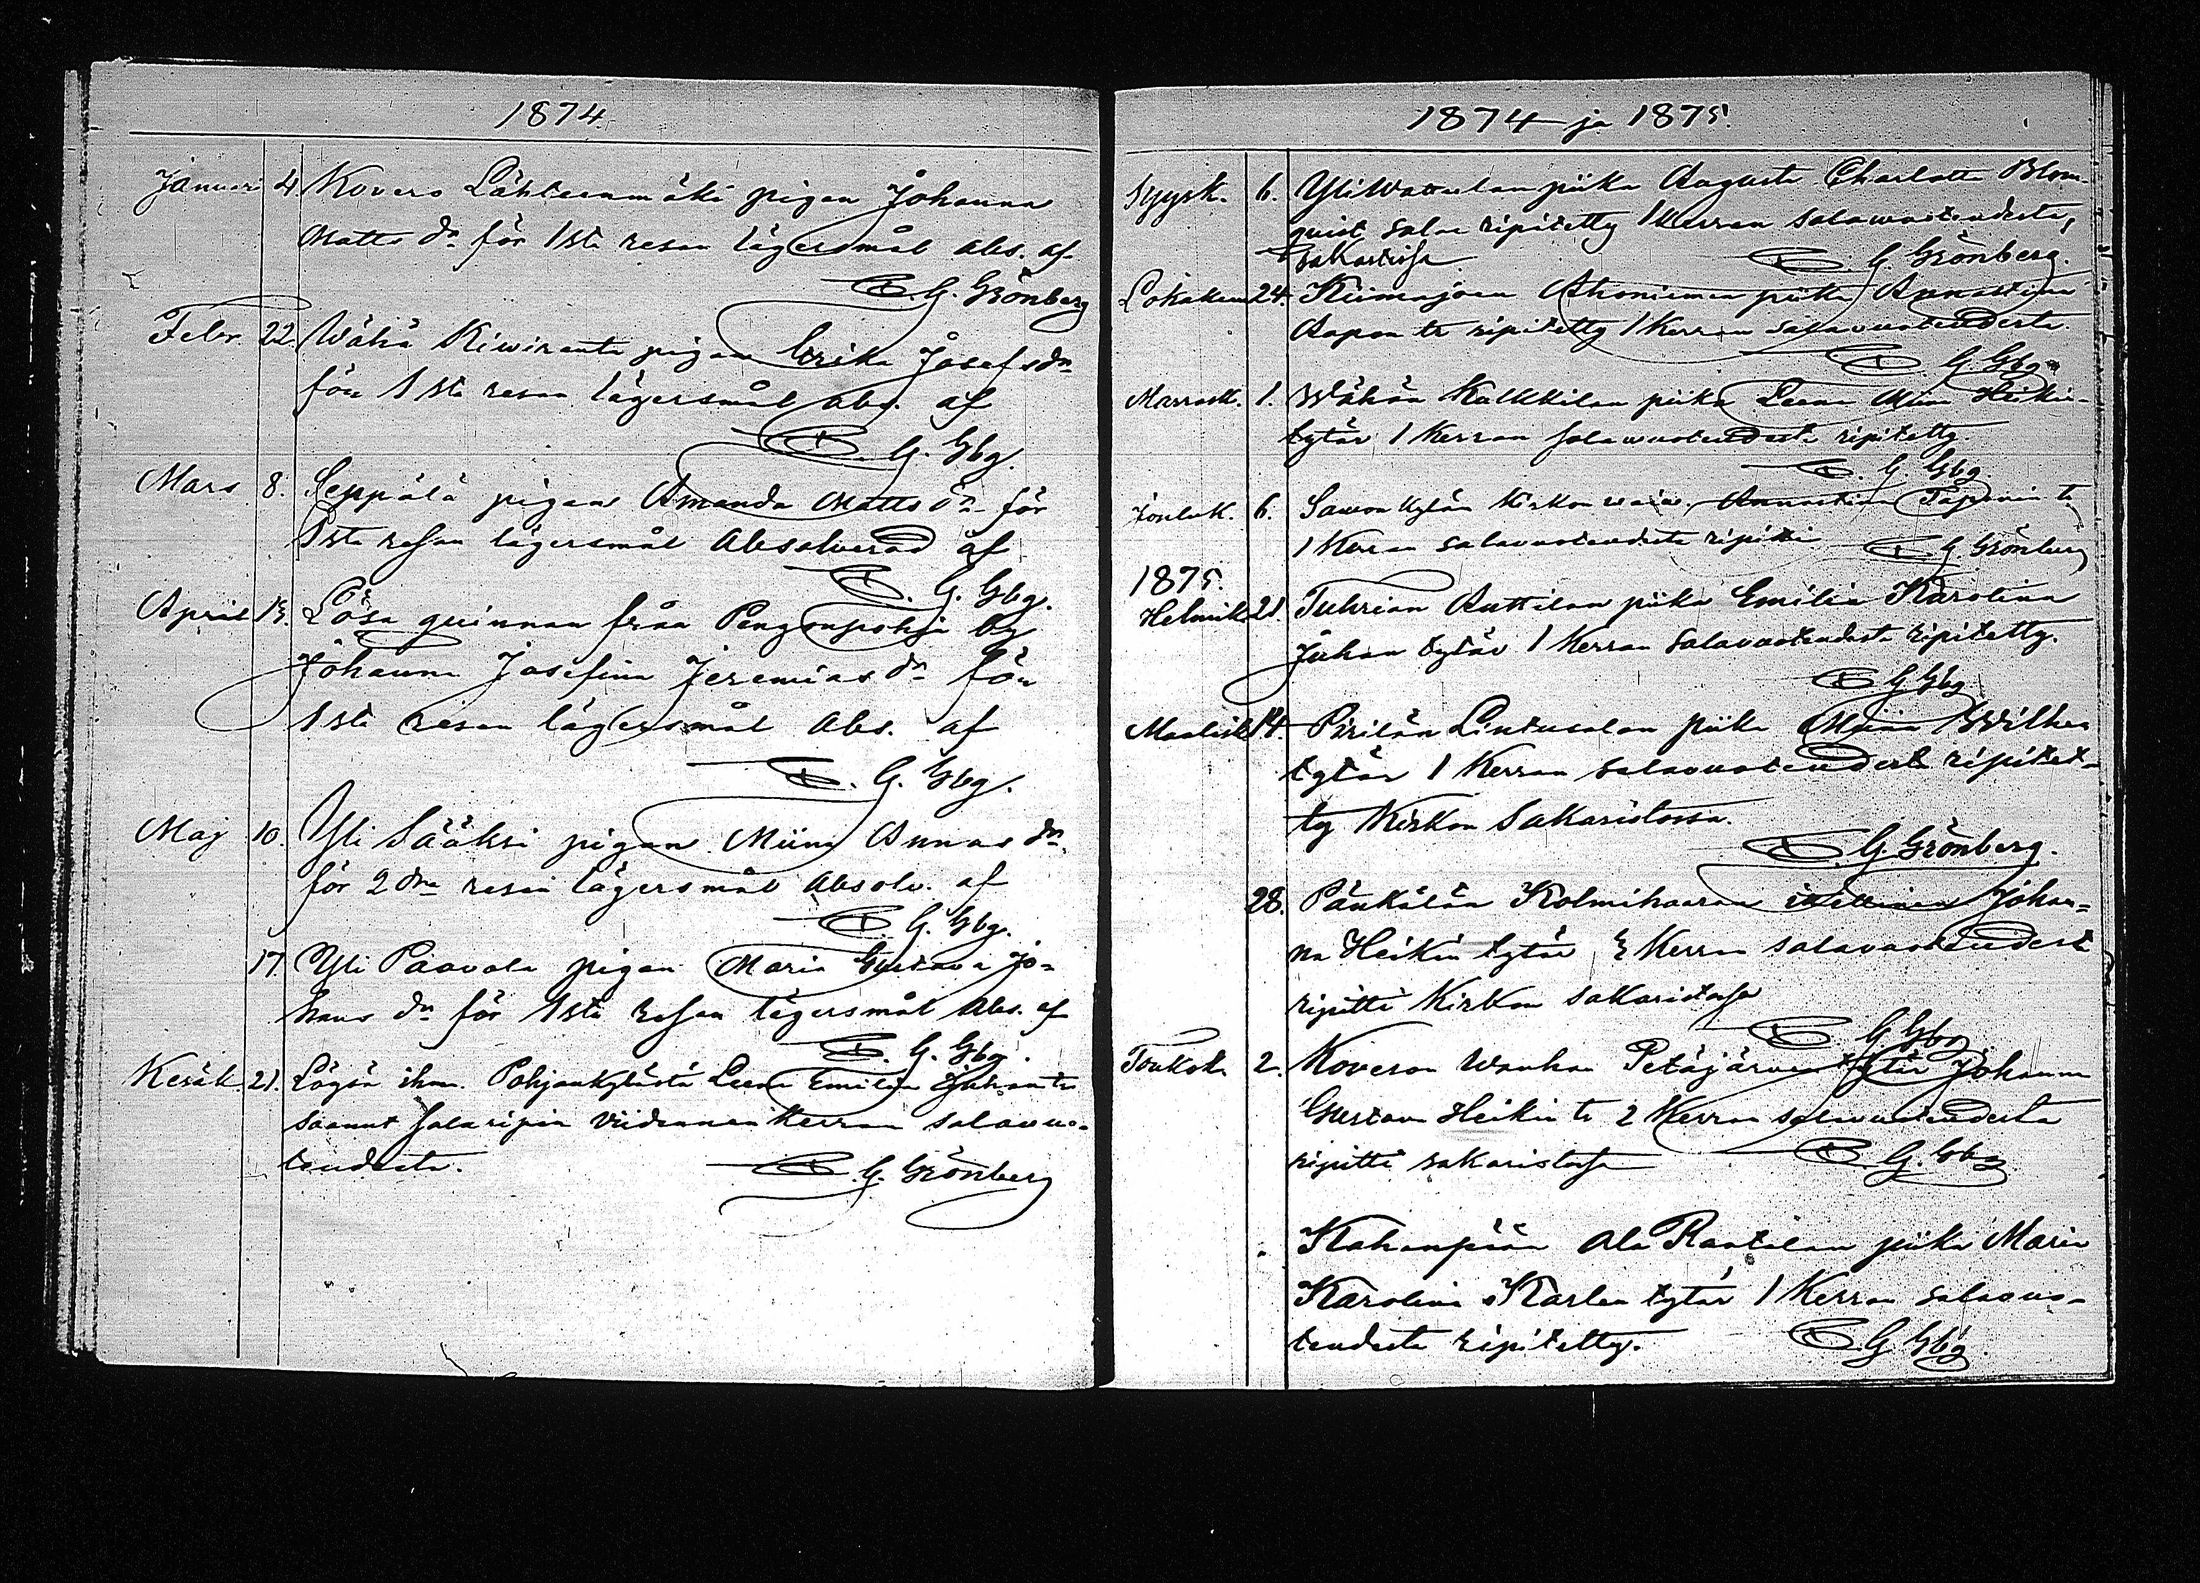 1874.
Januari 4. Kovero Lähteenmäki pigan Johanna
Matts dr för 1sta resan lägersmål abs. af
G. Grönberg
Febr. 22. Wähä Kiwiranta pigan Erika Josefsdr
för 1sta resan lägersmål abs. af
G. Gbg.
Mars 8. Seppälä pigan Amanda Matts dr för
1sta resan lägersmål Absolverad af
G. Gbg.
April Lösa quinnan från Pengonpohja by
Johanna Josefina Jeremias dr för
1sta resan lägersmål abs. af
G. Gbg.
Maj 10. Yli Sääksi pigan Miina Annas dr
för 2dra resan lägersmål absolv. af
G. Gbg.
17. Yli Paavola pigan Maria Gustava Jo-
hans dr för 1sta resan lägersmål Abs. af
G. Gbg.
Kesäk. 21. Löysä ihm. Pohjankylästä Leena Emilia Juhan tr
saanut salaripin viidennen kerran salavuo-
teudesta.
G. Grönberg
1874 ja 1875.
Syysk. 6. Yli piika Augusta Charlotta Blom-
quist salaa ripitetty 1 kerran salawuoteudesta,
sakastissa G. Grönberg.
Lokakuu 24. Kiimajoen Ahoniemen piika Annastiina
Aapon tr ripitetty 1 kerran salavuoteudesta.
G. Gbg.
Marrask. 1. Wähän Kulkkilan piika Leena Miina Heikin-
tytär 1 kerran salawuoteudesta ripitetty.
G. Gbg
Jouluk. 6. Sawon kylän kirkon waiw. Annastiina Taponin tr
1 kerran salavuoteudesta ripitti G. Grönberg
1875.
Helmik. 21. Tuhrian Anttilan piika Emilia Karolina
Juhan tytär 1 kerran salavuoteudesta ripitetty.
G. Gbg
Maalisk. 14. Pirilän Lintusalon piika Maija Wilhen
tytär 1 kerran salavuoteudesta ripitet-
ty Kirkon Sakaristossa.
G. Grönberg.
28. Pänkälän Kolmihaaran itellinen Johan-
na Heikin tytär, kerran salavuoteudesta
ripitti Kirkon sakaristossa
G. Gbg
Toukok. 2. Koveron Wanhan Petäjärven tytär Johanna
Gustava Heikin tr 2 kerran salavuoteudesta
ripitti sakaristossa G. Gbg
Kahanpään Ala Rantalan piika Maria
Karolina Karlen tytär 1 kerran salavuo-
teudesta ripitetty. G Gbg